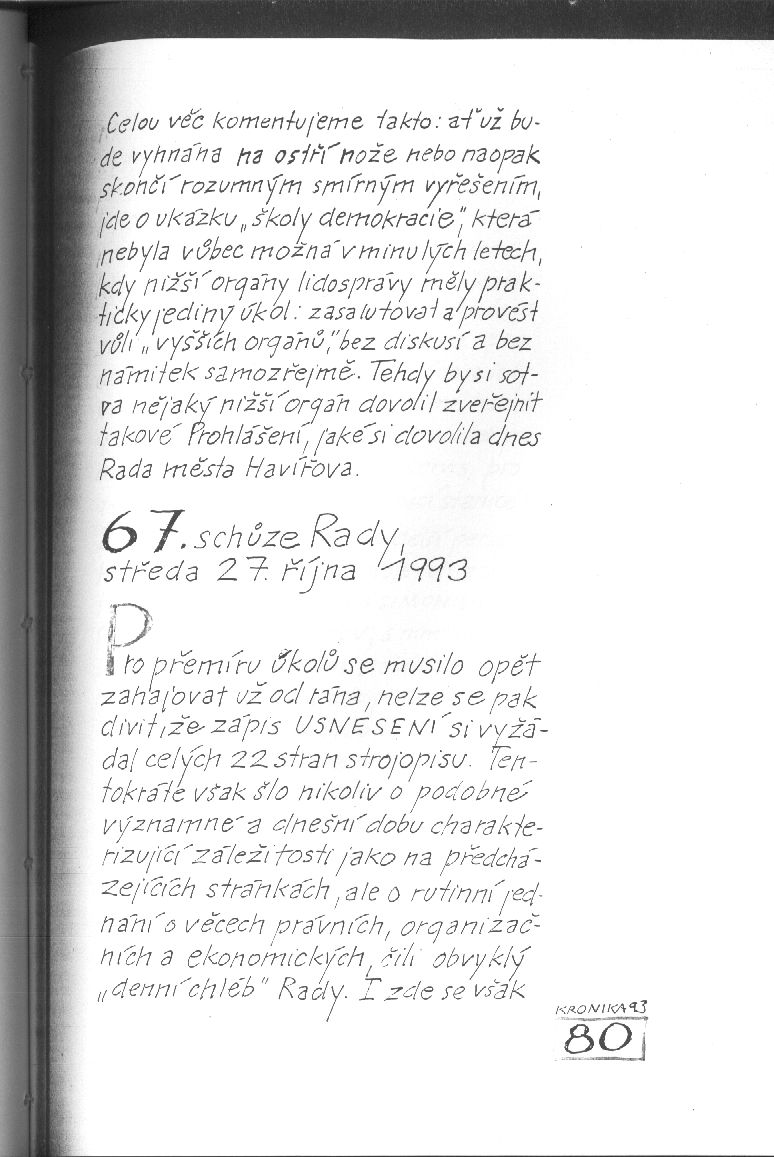 Celou věc komentujeme takto: ať už bu-
de vyhnána na ostří nože nebo naopak
skončí rozumným smírným vyřešením,
jde o ukázku „školy demokracie", která
nebyla vůbec možná v minulých letech,
kdy nižší orgány lidosprávy měly prak-
ticky jediný úkol: zasalutovat a provést
vůli „vyšších orgánů," bez diskusí a bez
námitek samozřejmě. Tehdy by si sot-
va nějaký nižší orgán dovolil zveřejnit
takové Prohlášení, jaké si dovolila dnes
Rada města Havířova.
67. schůze Rady,
středa 27. října 1993
Pro přemíru úkolů se musilo opět
zahajovat už od rána, nelze se pak
divit, že zápis USNESENÍ si vyžá-
dal celých 22 stran strojopisu. Ten-
tokráte však šlo nikoliv o podobné
významné a dnešní dobu charakte-
rizující záležitosti jako na předchá-
zejících stránkách, ale o rutinní jed-
nání o věcech právních, organizač-
ních a ekonomických, čili obvyklý
„denní chléb" Rady. I zde se však
KRONIKA 93
80